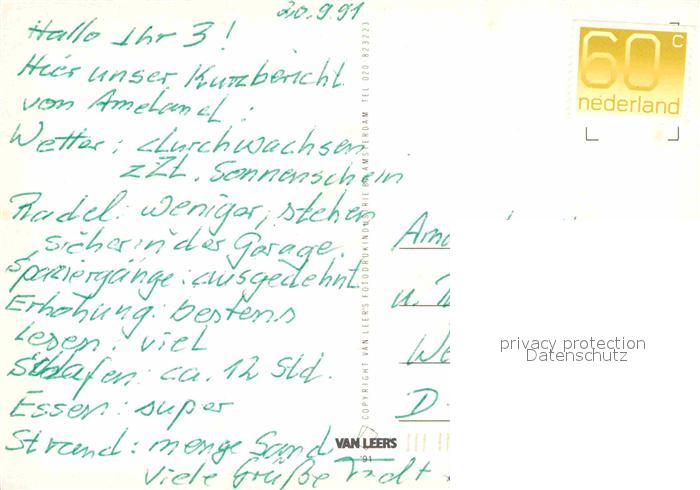 20.9.91
Hallo Ihr 3!
Hier unser Kurzbericht
von Ameland:
Wetter: durchwachsen
zZt. Sonnenschein
Radel: weniger, stehen
sicher in der Garage.
Spaziergänge: ausgedehnt
Erholung: bestens
Lesen: viel
Schlafen: ca. 12 Std.
Essen: super
Strand: menge Sand
Viele Grüße
COPYRIGHT VAN LEER'S FOTODRUKINDUSTRIE B AMSTERDAM TEL 020-823223
VAN LEERS
'91
60 c
nederland
u.
D-
privacy protection
Datenschutz